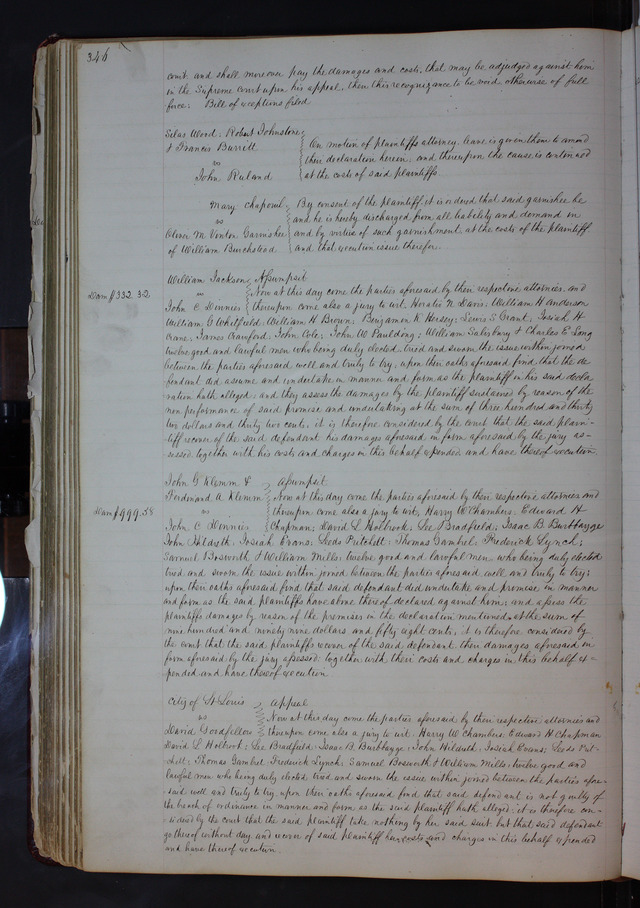 346
court and shall moreover pay the damages and costs, that may be adjudged against him
in the Supreme court upon his appeal, then this recognizance to be void otherwise of full
force: Bill of exceptions filed
Silas Wood: Robert Johnstone
& Francis Burritt
vs
John Ruland
On motion of plaintiffs attorney, leave is given them to amend
their declaration herein, and thereupon the cause is continued
at the costs of said plaintiffs.
Mary Chaponil
vs
Oliver M. Vinton Garnishee
of William Burchstead
By consent of the plaintiff, it is ordered that said garnishee be
and he is hereby discharged from all liability and demand in
and by virtue of such garnishment at the costs of the plaintiff
and that execution issue therefor.
Dam $332.32
William Jackson
vs
John C Dinnies
Assumpsit
Now at this day come the parties aforesaid by their respective attornies, and
thereupon come also a jury to wit. Horatio N. Davis: William H anderson
William G Whitfield: William H Brown: Benjamin K Hersey: Lewis S. Grant: Josiah H
Crane: James Crawford: John Cole: John W Paulding: William Salisbury & Charles E. Lang
twelve good and lawful men who being duly elected, tried and sworn the issue within joined
between the parties aforesaid well and truly to try, upon their oaths aforesaid find, that the de
fendant did assume and undertake in manner and form as the plaintiff in his said decla
ration hath alleged: and they assess the damages by the plaintiff sustained by reason of the
non performance of said promise and undertaking at the sum of three hundred and thirty
two dollars and thirty two cents. it is therefore considered by the court that the said plain-
tiff recover of the said defendant his damages aforesaid in form aforesaid by the jury as-
sessed, together with his costs and charges in this behalf expended and have thereof execution
Dam $999.58
John G Klemm &
Ferdinand A Klemm
vs
John C Dinnies
assumpsit
Now at this day come the parties aforesaid by their respective attornies and
thereupon come also a jury to wit, Harry W Chambers: Edward H
Chapman: David L Holbrook: Lee Bradfield: Isaac B Burbbayge
John Hildreth: Josiah Evans: Leeds Pritchett: Thomas Gambel: Frederick Lynch:
Samuel Bosworth & William Mills: twelve good and lawful men who being duly elected
tried and sworn the issue within joined between the parties aforesaid well and truly to try:
upon their oaths aforesaid find that said defendant did undertake and promise in manner
and form as the said plaintiffs have alone thereof declared against him, and assess the
plaintiffs damages by reason of the premises in the declaration mentioned, at the sum of
nine hundred and ninety nine dollars and fifty eight cents, it is therefore considered by
the court that the said plaintiffs recover of the said defendant their damages aforesaid in
form aforesaid by the jury assessed together with their costs and charges in this behalf ex-
pended and have thereof execution
City of St Louis
vs
David Goodfellow
appeal
Now at this day come the parties aforesaid by their respective attornies and
thereupon come also a jury to wit. Harry W Chambers: Edward H Chapman
David L Holbrook: Lee Bradfield: Isaac B Burbbayge: John Hildreth: Josiah Evans: Leeds Prit-
chett: Thomas Gambel: Frederick Lynch: Samuel Bosworth & William Mills: twelve good and
lawful men who being duly elected tried and sworn the issue within joined between the parties afore-
said well and truly to try: upon their oaths aforesaid find that said defendant is not guilty of
the breach of ordinance in manner and form as the said plaintiff hath alleged: it is therefore con-
sidered by the court that the said plaintiff take nothing by her said suit but that said defendant
go thereof without day and recover of said plaintiff his costs and charges in this behalf expended
and have thereof execution